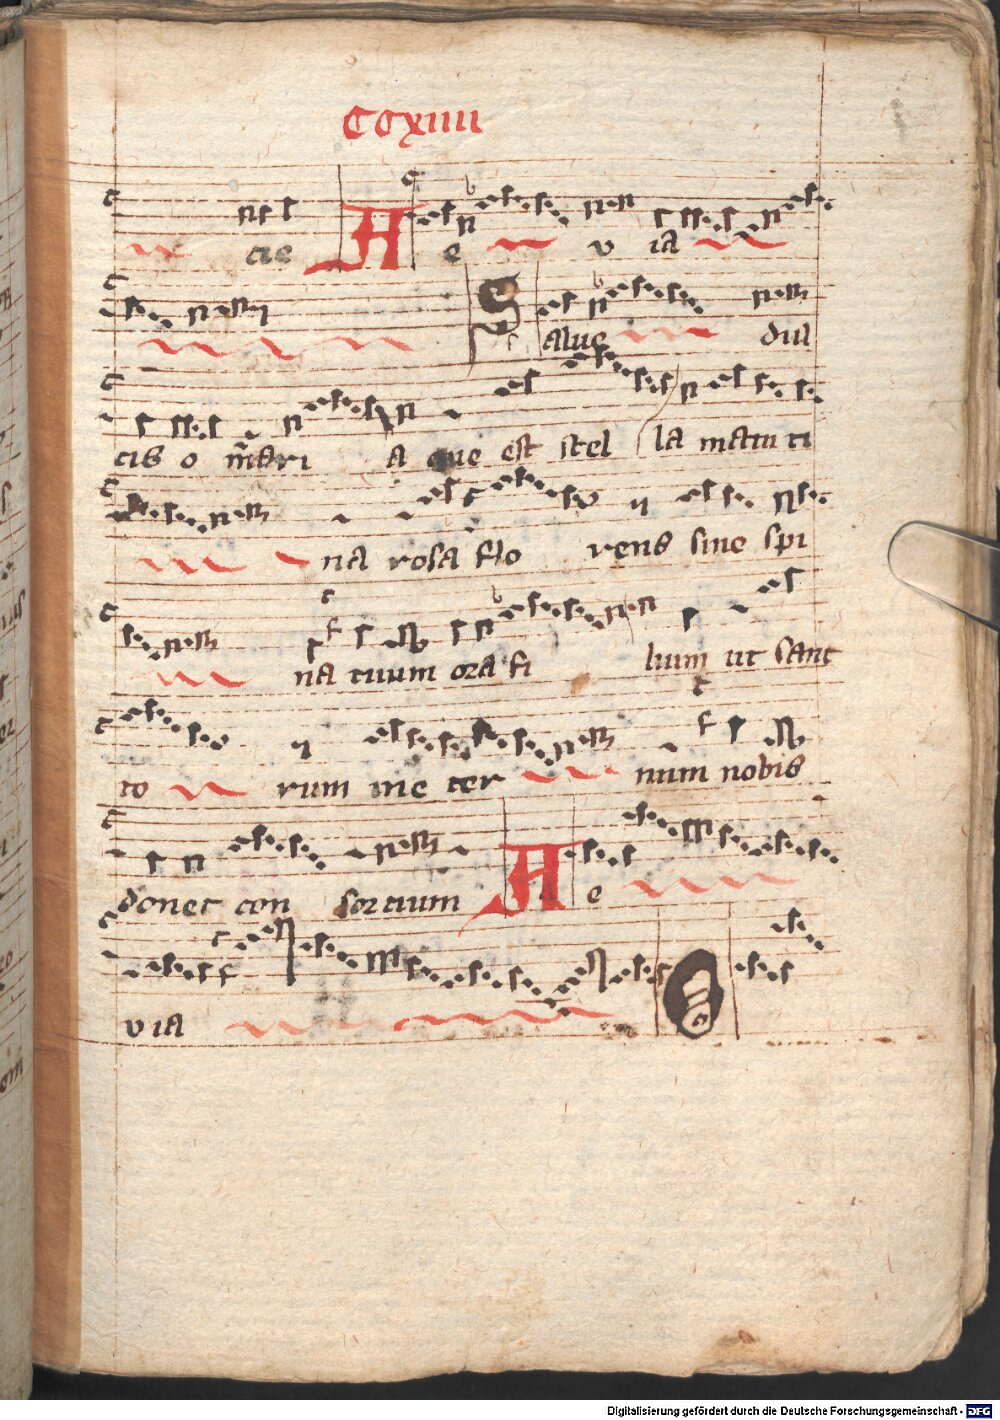 CCXIIII
cie A e v ia
Salue dul
cis o mari a que est stel la matu ti
na rosa flo rens sine spi
na tuum ora fi lium ut sanc
to rum me ter num nobis
donet con sortium A e
v ia O
Digitalisierung gefördert durch die Deutsche Forschungsgemeinschaft - DFG